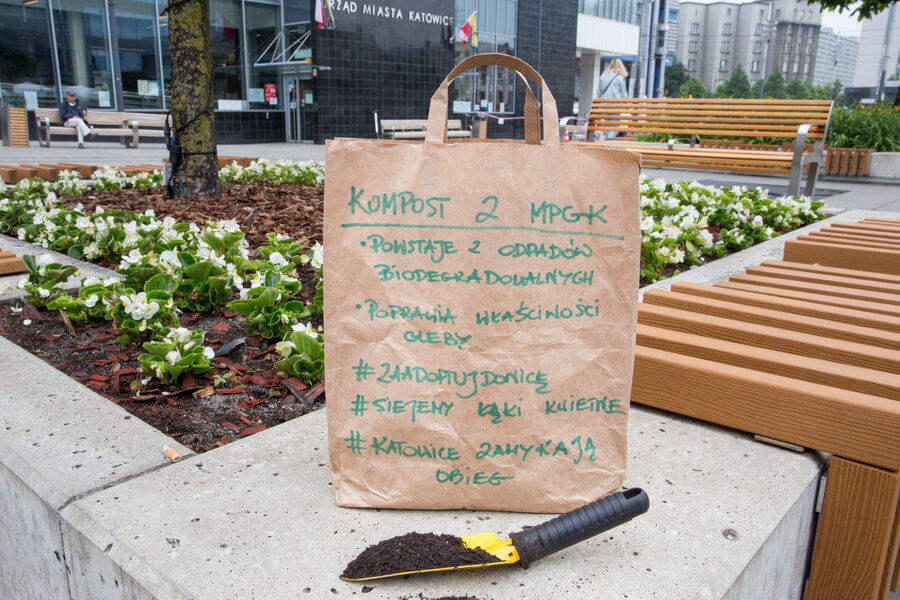 RZĄD MIASTA KATOWICE
KOMPOST Z MPGK
• POWSTAJE Z ODPADÓW
BIODEGRADOWALNYCH
• POPRAWIA WŁAŚCIWOŚCI
GLEBY
#ZAADOPTUJDONICĘ
#SIEJEMY ŁĄKI KWIETNE
#KATOWICE ZAMYKAJĄ
OBIEG